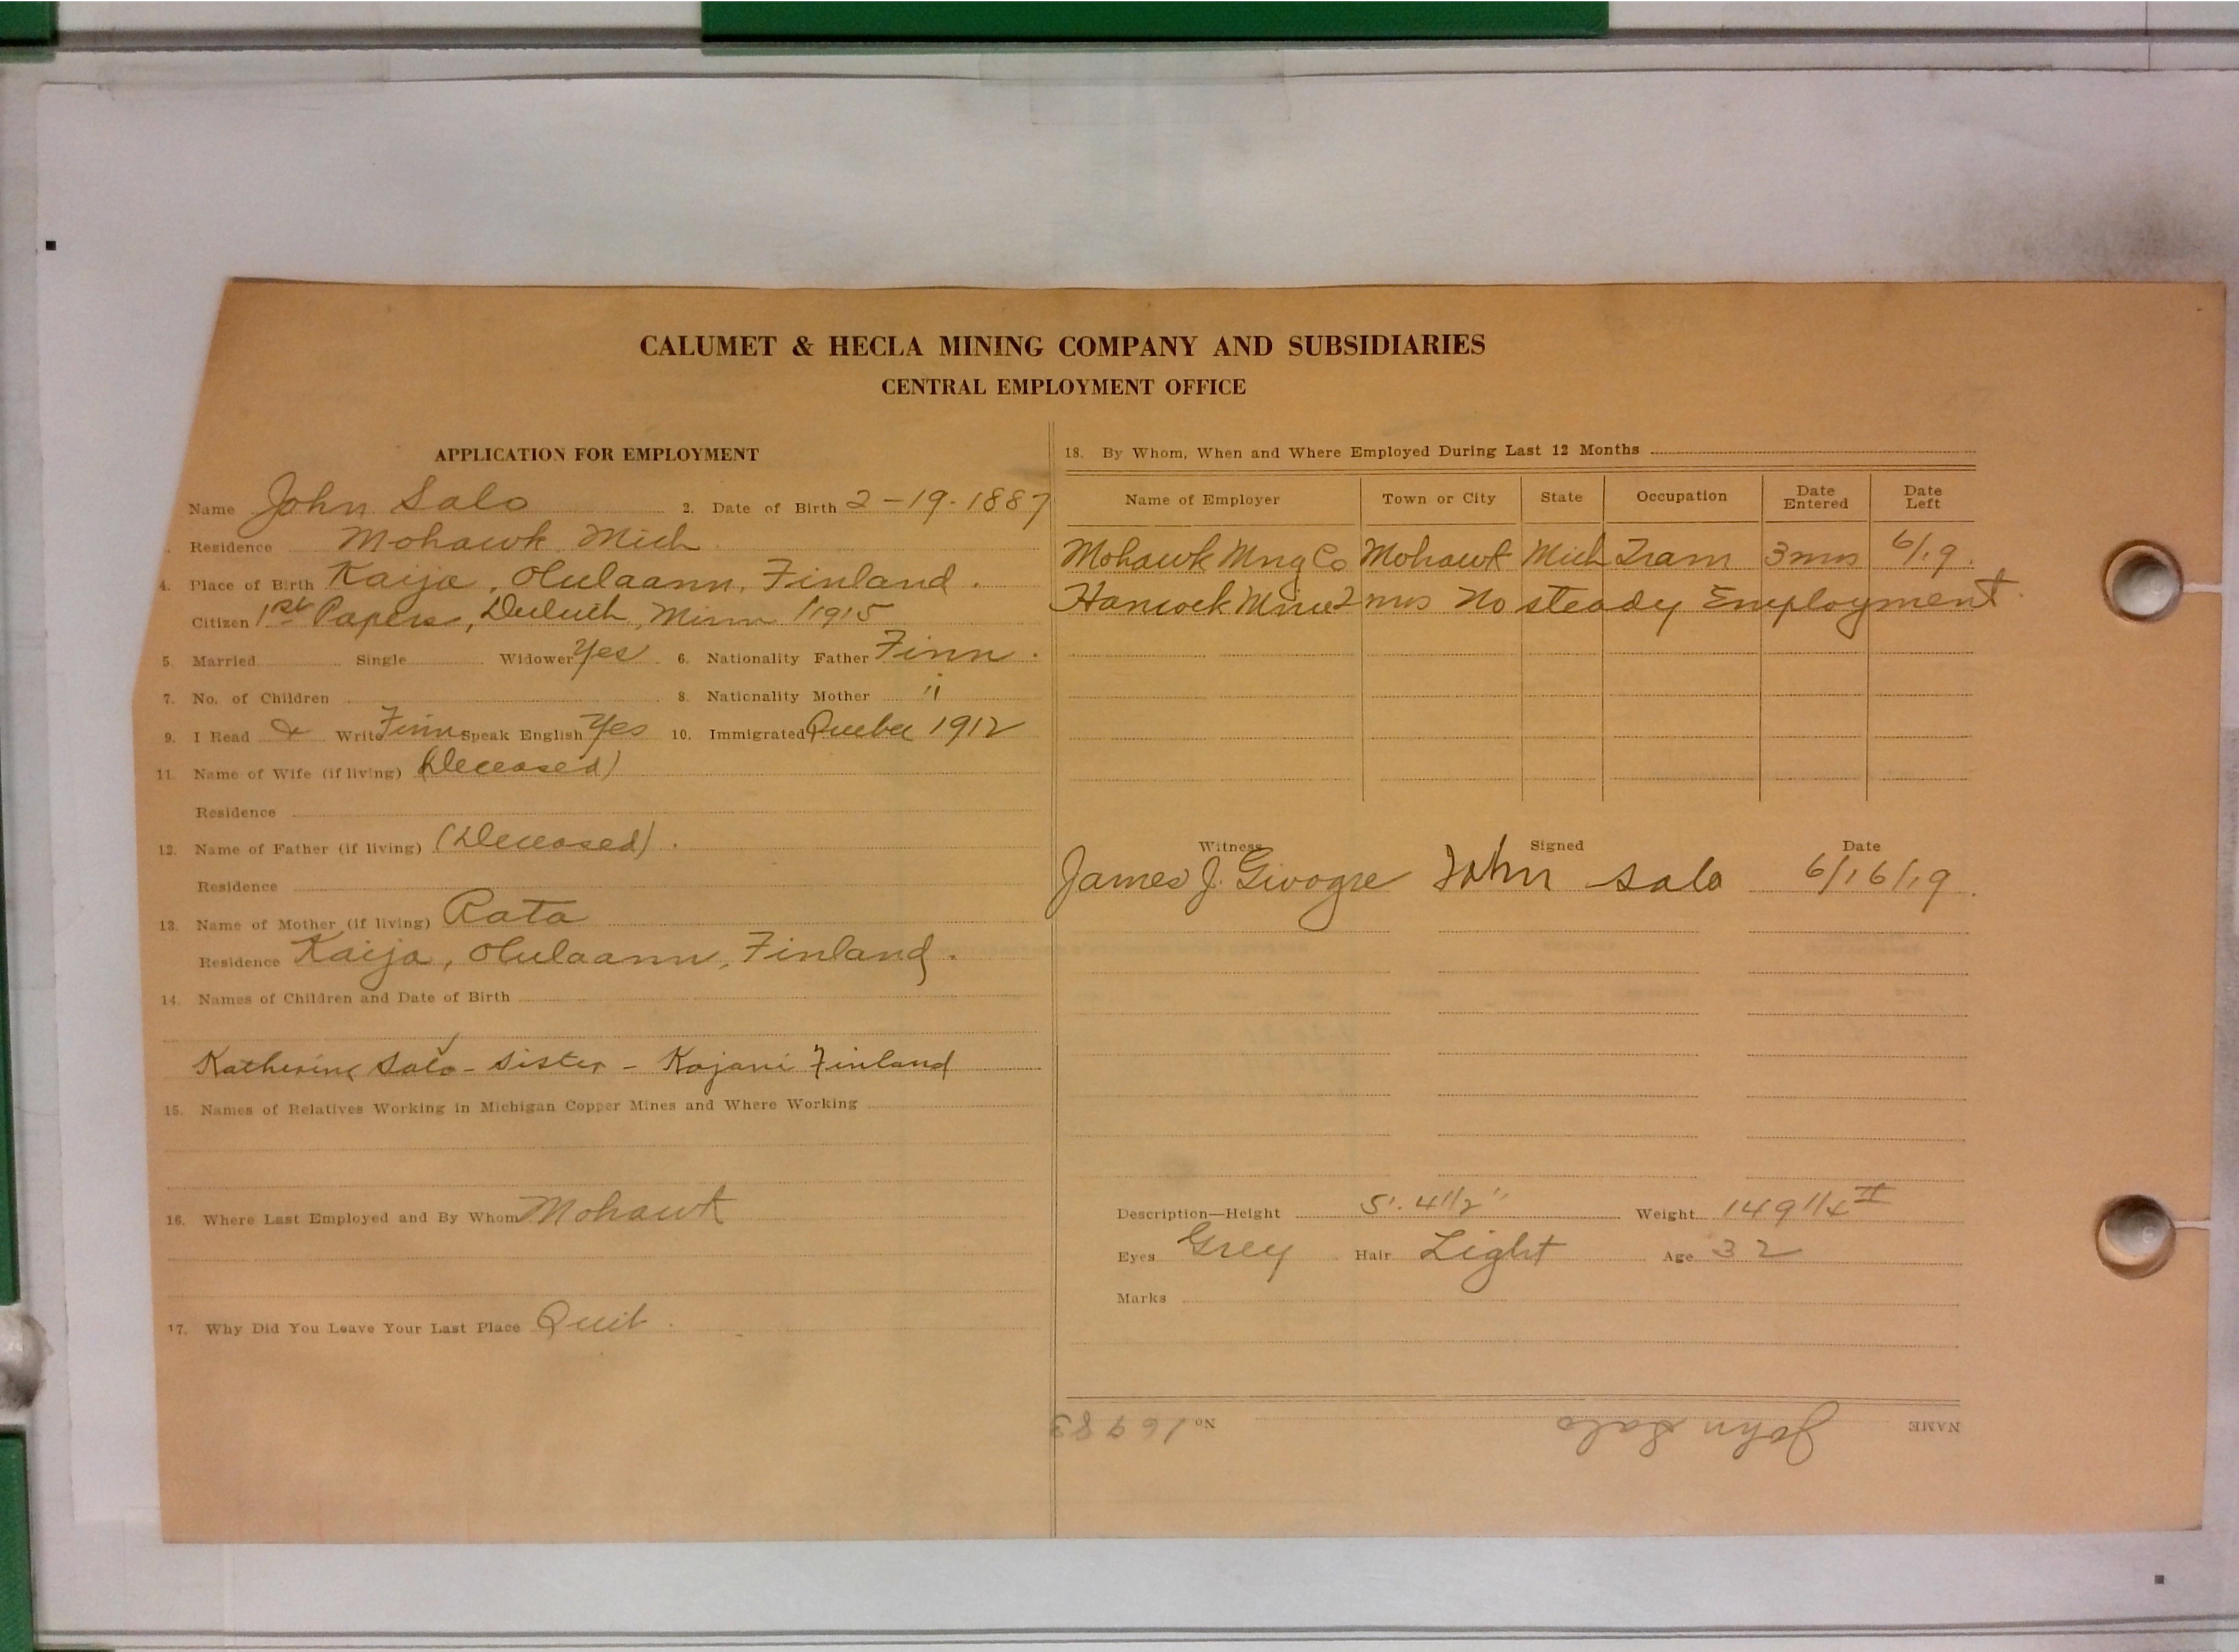 CALUMET & HECLA MINING COMPANY AND SUBSIDIARIES
CENTRAL EMPLOYMENT OFFICE
APPLICATION FOR EMPLOYMENT
Name John Salo 2. Date of Birth 2-19-1887
Residence Mohawk Mich
4. Place of Birth Kaija, Olulaann, Finland.
Citizen 1st Papers, Duluth, Minn 1915
5. Married Single Widower Yes 6. Nationality Father Finn.
7. No. of Children 8. Nationality Mother "
9. I Read & Write Finn Speak English Yes 10. Immigrated Quebec 1912
11. Name of Wife (if living) (Deceased)
Residence
12. Name of Father (if living) (Deceased).
Residence
13. Name of Mother (if living) Rata
Residence Kaija, Olulaann, Finland.
14. Names of Children and Date of Birth
Katherine Salo - Sister - Kajani Finland
15. Names of Relatives Working in Michigan Copper Mines and Where Working
16. Where Last Employed and By Whom Mohawk
17. Why Did You Leave Your Last Place Quit.
18. By Whom, When and Where Employed During Last 12 Months
Name of Employer Town or City State Occupation Date Entered Date Left
Mohawk Mng Co Mohawk Mich Tram 3 mos 6/19.
Hancock Mine 2 mos No steady Employment.
Witness Signed Date
James J. John Salo 6/16/19.
Description—Height 5'. 4 1/2" Weight 149 1/4 #
Eyes Grey Hair Light Age 32
Marks
NAME John Salo No 16983